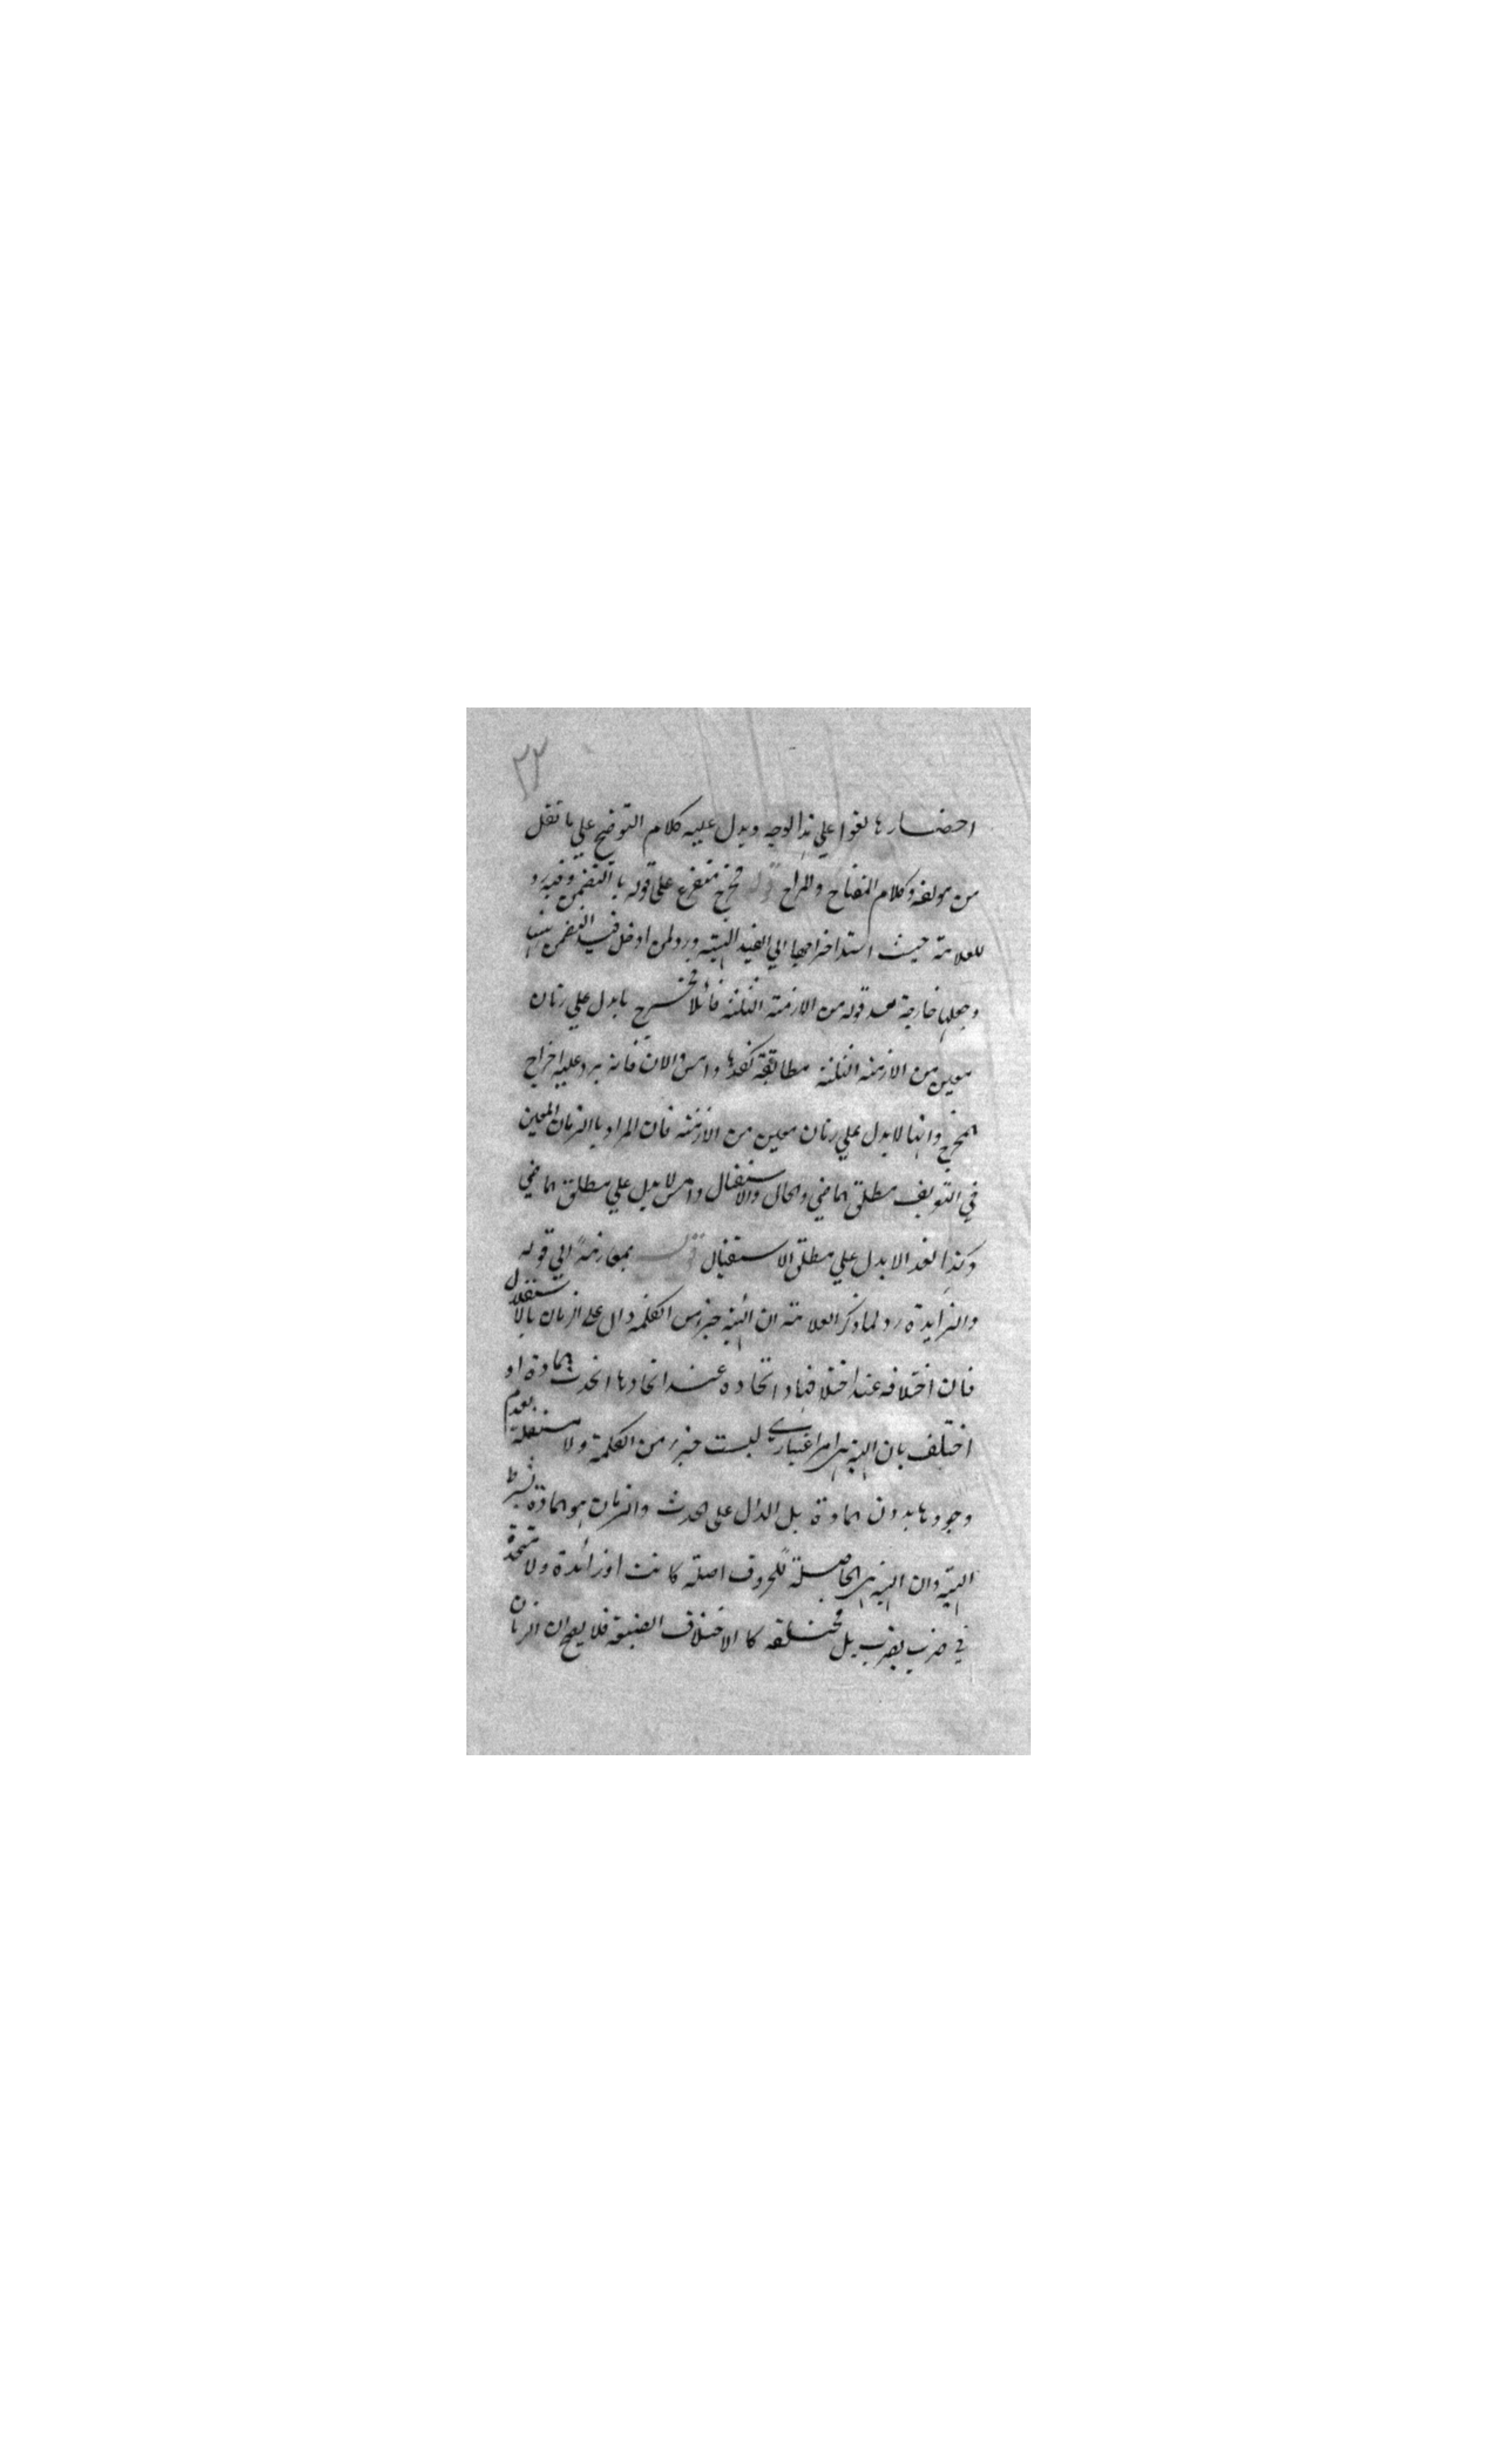 ٢٢
احضارها لغوا علي هذا الوجه ويدل عليه كلام التوضيح علي ما نقل
من مولفه وكلام المفتاح والمراح قوله فخرج متفرع على قوله بالتضمن وفيه رد
للعلامة حيث اسند اخراجها الي القيد الهيئة ورد لمن ادخل قيد التضمن
وجعلها خارجة بعد قوله من الازمنة الثلثة قائلا فخرج ما يدل علي زمان
معين من الازمنة الثلثة مطابقة كغد وامس والان فانه يرد عليه اخراج
المخرج وانها لا يدل علي زمان معين من الازمنة فان المراد بالزمان المعين
في التعريف مطلق الماضي والحال والاستقبال وامس لا يدل علي مطلق الماضي
وكذا الغد لا يدل علي مطلق الاستقبال قوله الي قوله
والزايدة رد لما ذكر العلامة ان الهيئة جزء من الكلمة دال على الزمان بالاستقلال
فان اختلافه عند اختلافها واتحاده عند اتحادها اتحدت المادة او
اختلف بان الهيئة امر اعتباري ليست جزء من الكلمة ولا مستقلة بعدم
وجودها بدون المادة بل الدال على الحدث والزمان هو المادة بشرط
الهيئة وان الهيئة هي الحاصلة للحروف اصلية كانت او زائدة ولا متحدة
في ضرب يضرب بل مختلفة كالاختلاف الصيغة فلا يصح ان الزمان